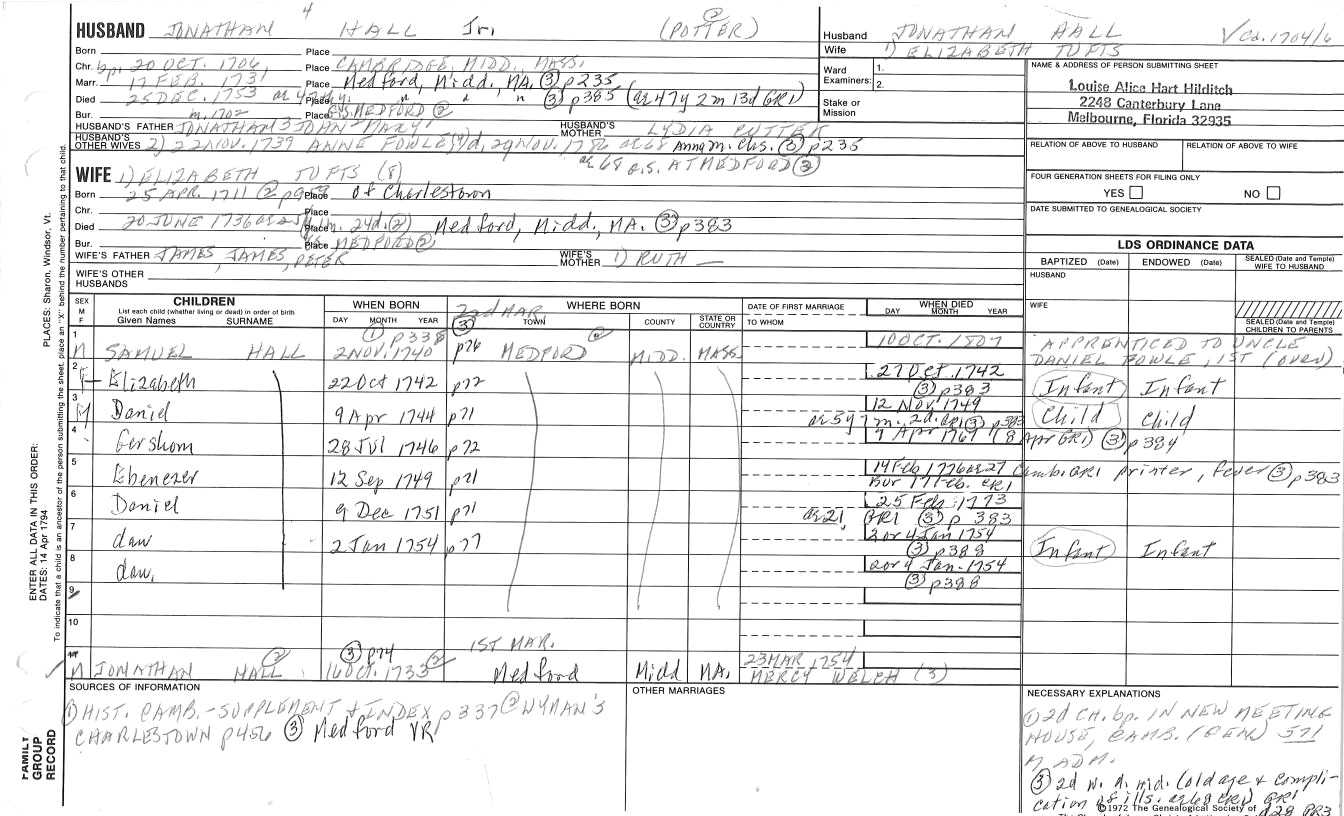 4
HUSBAND JONATHAN HALL Jr. (POTTER) ②
Born Place
Chr. bp. 20 OCT. 1706 Place CAMBRIDGE, MIDD., MASS.
Marr. 17 FEB. 1731 Place Medford, Midd., MA. ③ p235
Died 25 DEC. 1753 Place " " " ③ p385 (ae 47y 2m 13d GR1)
Bur. Place G.S. MEDFORD ②
HUSBAND'S FATHER JONATHAN 3 JOHN - MARY HUSBAND'S MOTHER LYDIA CUTTER
HUSBAND'S OTHER WIVES 2) 22 NOV. 1739 ANNE FOWLE d. 29 NOV. 1786 ae 68 Anna m. Chs. ③ p235
ae 68 G.S. AT MEDFORD ③
WIFE 1) ELIZABETH TUFTS (8)
Born 25 APR. 1711 ② Place of Charlestown
Chr. Place
Died 20 JUNE 1736 24d. ② Medford, Midd., MA. ③ p383
Bur. Place MEDFORD ②
WIFE'S FATHER JAMES, JAMES, PETER WIFE'S MOTHER 1) RUTH —
WIFE'S OTHER HUSBANDS
Husband JONATHAN HALL √ Cd. 1704/6
Wife 1) ELIZABETH TUFTS
Ward Examiners: 1.
2.
Stake or Mission
NAME & ADDRESS OF PERSON SUBMITTING SHEET
Louise Alice Hart Hilditch
2248 Canterbury Lane
Melbourne, Florida 32935
RELATION OF ABOVE TO HUSBAND RELATION OF ABOVE TO WIFE
FOUR GENERATION SHEETS FOR FILING ONLY
YES NO
DATE SUBMITTED TO GENEALOGICAL SOCIETY
LDS ORDINANCE DATA
BAPTIZED (Date) ENDOWED (Date) SEALED (Date and Temple) WIFE TO HUSBAND
HUSBAND
WIFE
SEALED (Date and Temple) CHILDREN TO PARENTS
SEX M F CHILDREN WHEN BORN 22d MAR. WHERE BORN DATE OF FIRST MARRIAGE WHEN DIED
List each child (whether living or dead) in order of birth
Given Names SURNAME DAY MONTH YEAR TOWN COUNTY STATE OR COUNTRY TO WHOM DAY MONTH YEAR
① p338 ③ ②
1 M SAMUEL HALL 2 NOV. 1740 p76 MEDFORD MIDD. MASS 10 OCT. 1807 APPRENTICED TO UNCLE
DANIEL FOWLE, 1ST (OVER)
2 F Elizabeth 22 Oct 1742 p72 27 Oct. 1742 Infant Infant
③ p383
3 M Daniel 9 Apr 1744 p71 12 Nov. 1749 Child Child
ae 5y 7m. 2d. GR1 ③ p383
4 Gershom 28 Jul 1746 p72 9 Apr 1769 (8 Apr GR1) ③ p384
5 Ebenezer 12 Sep 1749 p71 14 Feb 1776 ae 27 Camb. GR1 printer, fever ③ p383
Bur 17 Feb. GR1
6 Daniel 9 Dec 1751 p71 25 Feb. 1773
ae 21, GR1 ③ p 383
7 dau 2 Jan 1754 p77 2 or 4 Jan 1754 Infant Infant
③ p388
8 dau. 2 or 4 Jan. 1754
③ p388
9
10
③ p74 1ST MAR.
M JONATHAN HALL ② 16 OCT. 1733 ② Medford Midd MA. 23 MAR 1754
MERCY WELCH (3)
SOURCES OF INFORMATION
① HIST. CAMB. - SUPPLEMENT & INDEX p 337 ② WYMAN'S
CHARLESTOWN p456 ③ Medford VR
OTHER MARRIAGES
NECESSARY EXPLANATIONS
① 2d CH. bp. IN NEW MEETING
HOUSE, CAMB. (GEN) 571
M ADM.
③ 2d w. A. wid. (old age & compli-
cation of ills. ae 68 GR1) GR1
©1972 The Genealogical Society of
PLACES: Sharon, Windsor, Vt.
To indicate that a child is an ancestor of the person submitting the sheet, place an "X" behind the number pertaining to that child.
ENTER ALL DATA IN THIS ORDER:
DATES: 14 Apr 1794
FAMILY GROUP RECORD